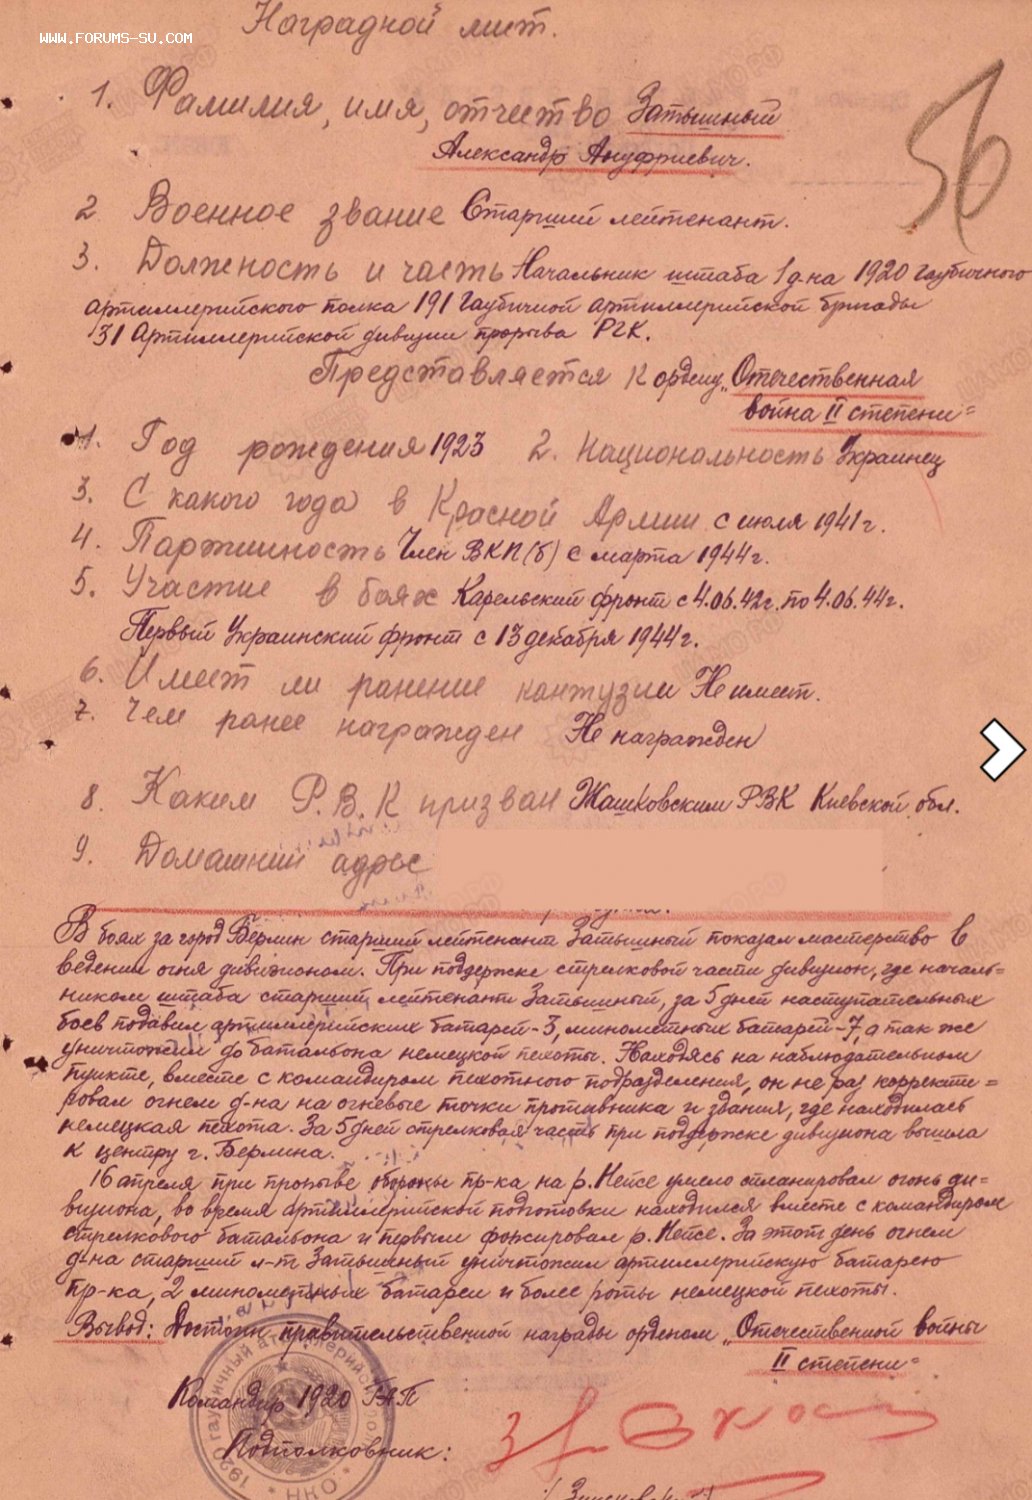 WWW.FORUMS-SU.COM
Наградной лист.
56
1. Фамилия, имя, отчество Затышный
Александр Ануфриевич.
2 Военное звание Старший лейтенант.
3. Должность и часть Начальник штаба 1 д-на 1920 гаубичного
артиллерийского полка 191 Гаубичной артиллерийской бригады
31 Артиллерийской дивизии прорыва РГК.
Представляется к ордену „Отечественная
война II степени"
1. Год рождения 1923 2. Национальность Украинец
3. С какого года в Красной Армии с июля 1941 г.
4. Партийность Член ВКП(б) с марта 1944 г.
5. Участие в боях Карельский фронт с 4.06.42 г. по 4.06.44 г.
Первый Украинский фронт с 13 декабря 1944 г.
6. Имеет ли ранение контузии Не имеет.
7. Чем ранее награжден Не награжден
8. Каким Р.В.К призван Жашковским РВК Киевской обл.
9. Домашний адрес
В боях за город Берлин старший лейтенант Затышный показал мастерство в
ведении огня дивизионом. При поддержке стрелковой части дивизион, где началь=
ником штаба старший лейтенант Затышный, за 5 дней наступательных
боев подавил артиллерийских батарей-3, минометных батарей-7, а так же
уничтожил до батальона немецкой пехоты. Находясь на наблюдательном
пункте, вместе с командиром пехотного подразделения, он не раз корректи=
ровал огнем д-на на огневые точки противника и здания, где находилась
немецкая пехота. За 5 дней стрелковая часть при поддержке дивизиона вышла
к центру г. Берлина.
16 апреля при прорыве обороны пр-ка на р. Нейсе умело спланировал огонь ди=
визиона, во время артиллерийской подготовки находился вместе с командиром
стрелкового батальона и первым форсировал р. Нейсе. За этот день огнем
д-на старший л-т Затышный уничтожил артиллерийскую батарею
пр-ка, 2 минометных батареи и более роты немецкой пехоты.
Вывод: Достоин правительственной награды орденом „Отечественной войны
II степени"
Командир 1920 ГАП
Подполковник: